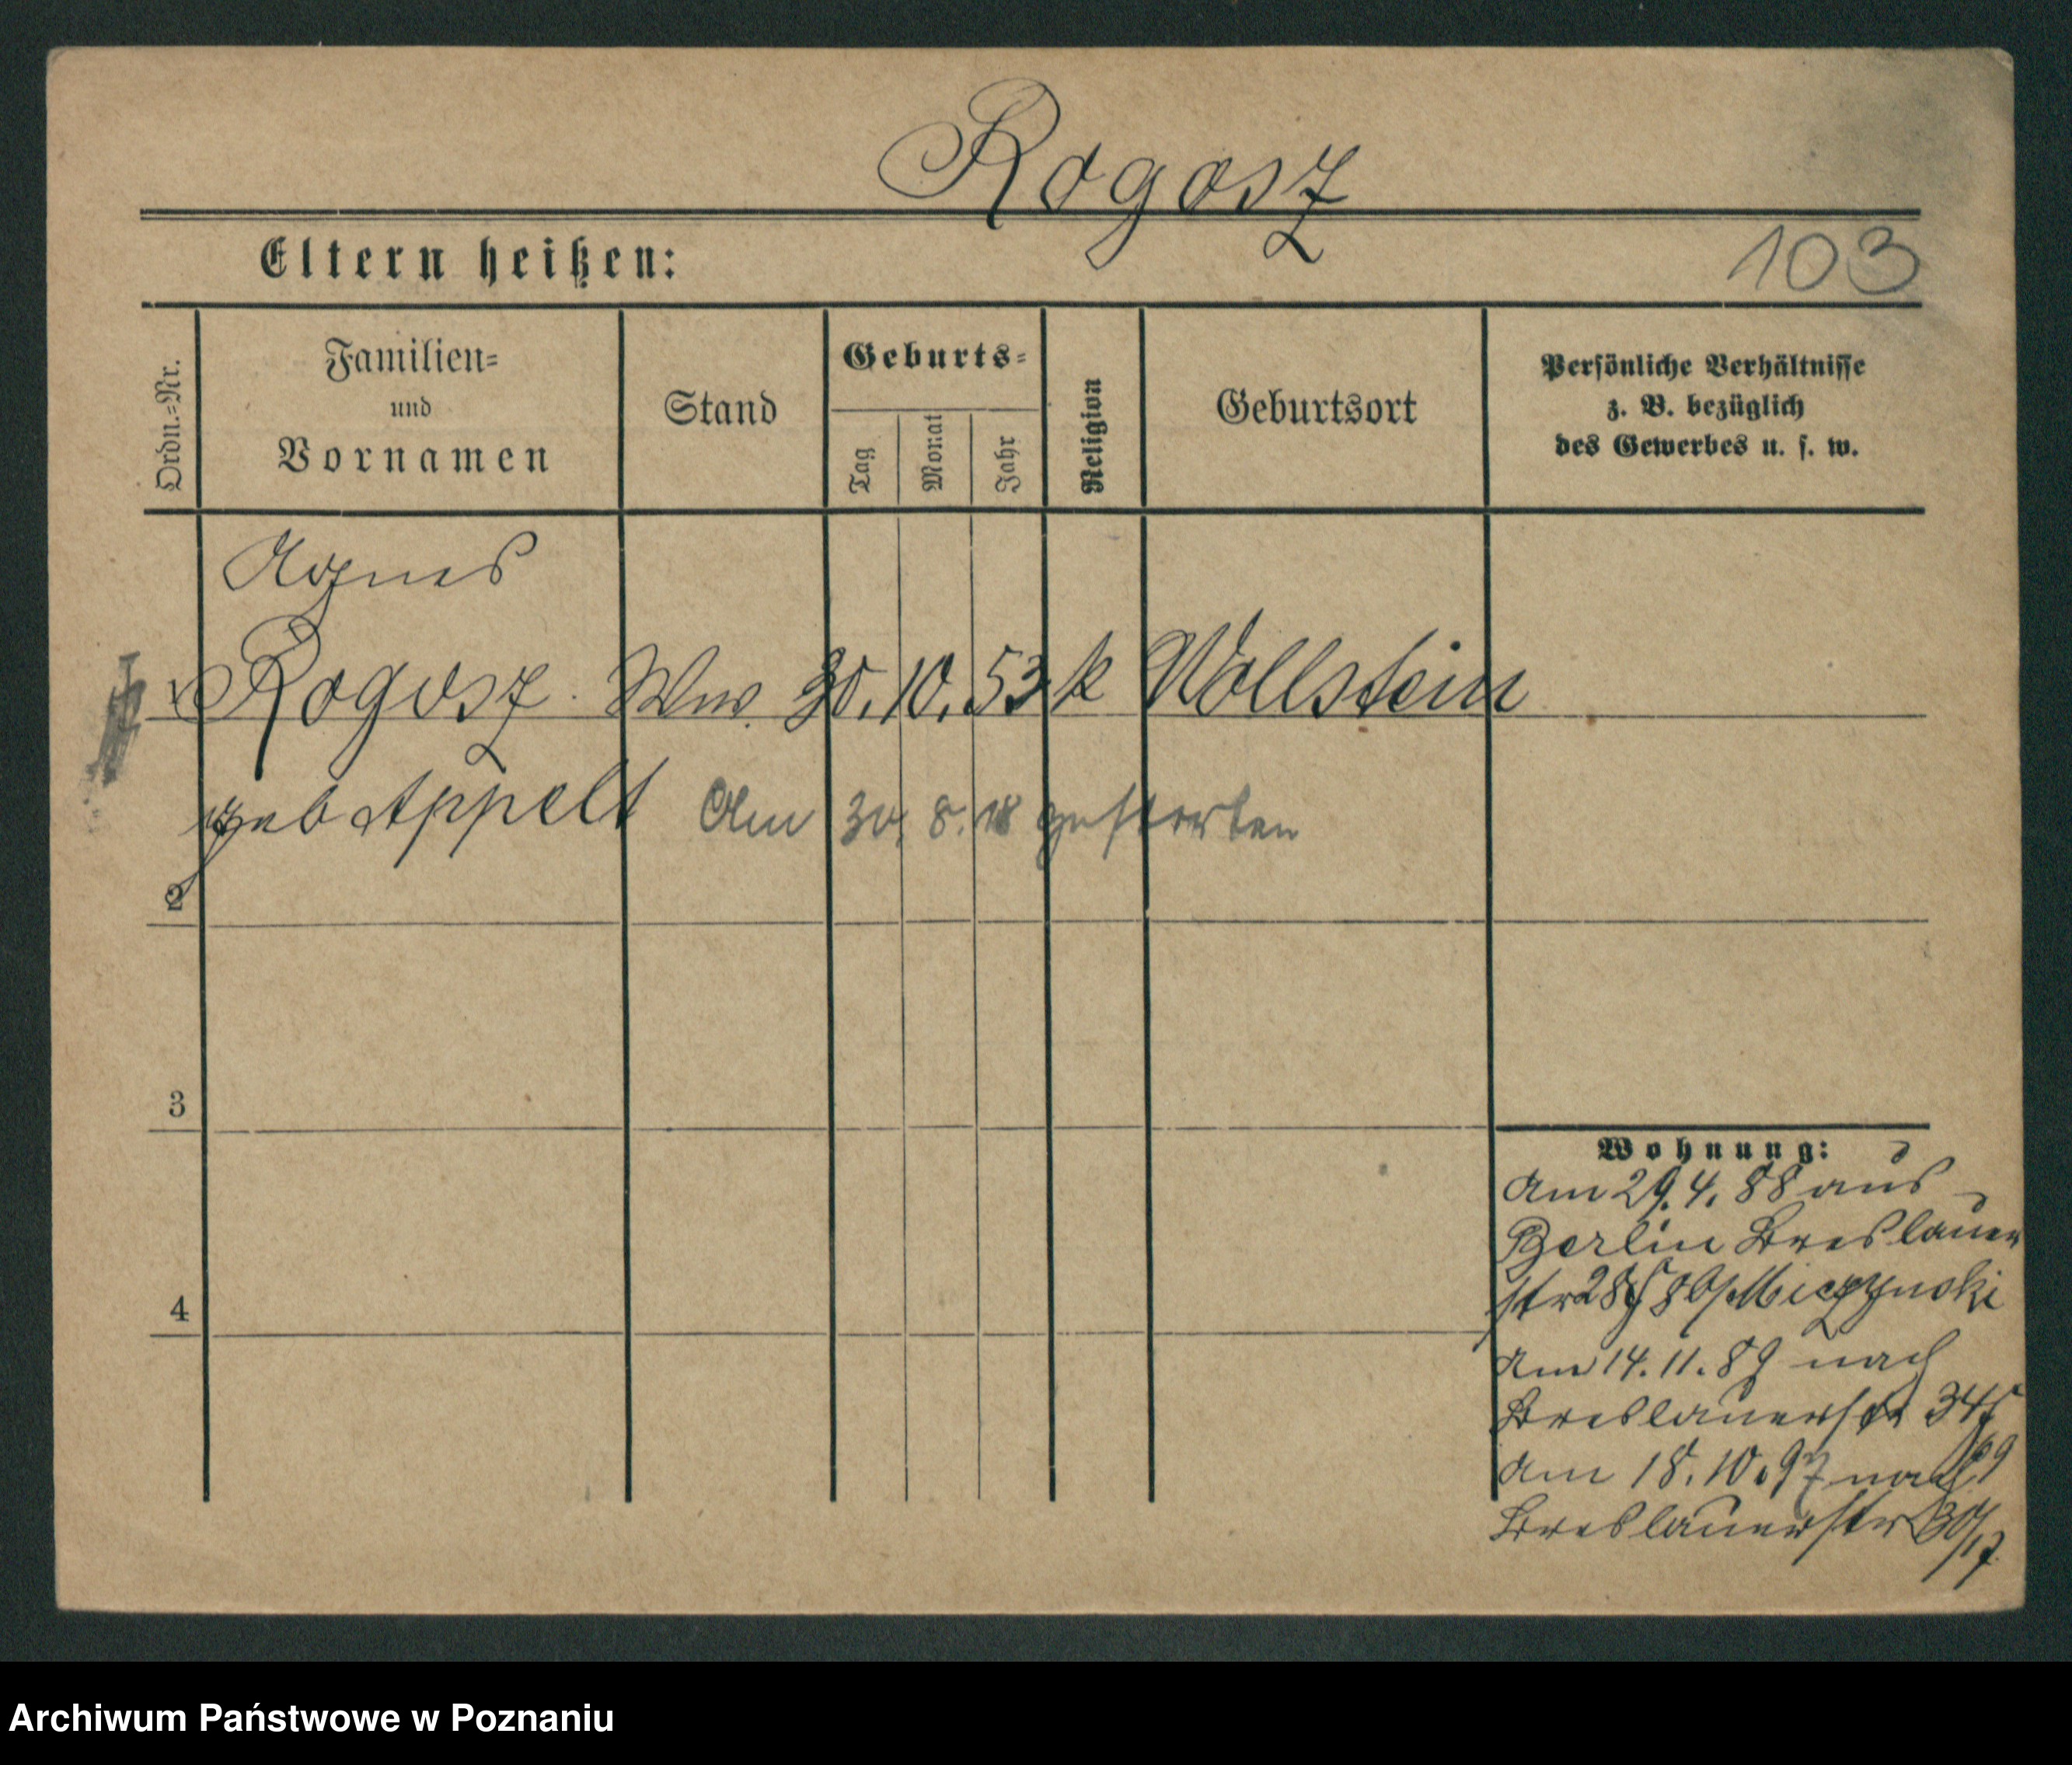 Rogosz
Eltern heißen:
103
Ordn.-Nr.
Familien-
und
Vornamen
Stand
Geburts-
Tag
Monat
Jahr
Religion
Geburtsort
Persönliche Verhältnisse
z. B. bezüglich
des Gewerbes u. s. w.
Agnes
Rogosz Ww. 30. 10. 53 k Wollstein
geb Appelt
Am 30. 8. 18 gestorben
2
3
4
Wohnung:
Am 29. 4. 88 aus
Berlin Breslauer
str
am 14. 11. 89 nach
Breslauerstr
am 18. 10. 97 nach
Breslauerstr 30/17
Archiwum Państwowe w Poznaniu